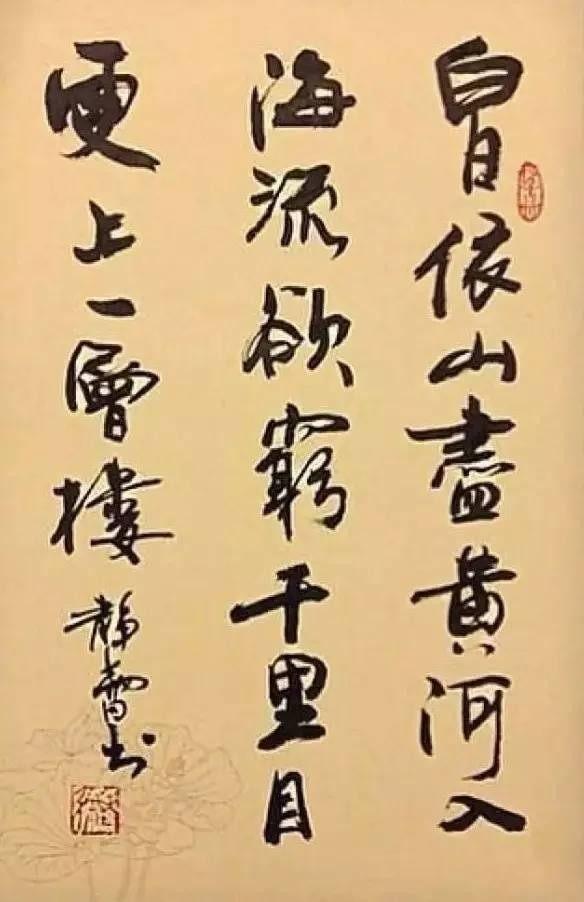 白日依山盡黄河入
海流欲窮千里目
更上一層樓
静书